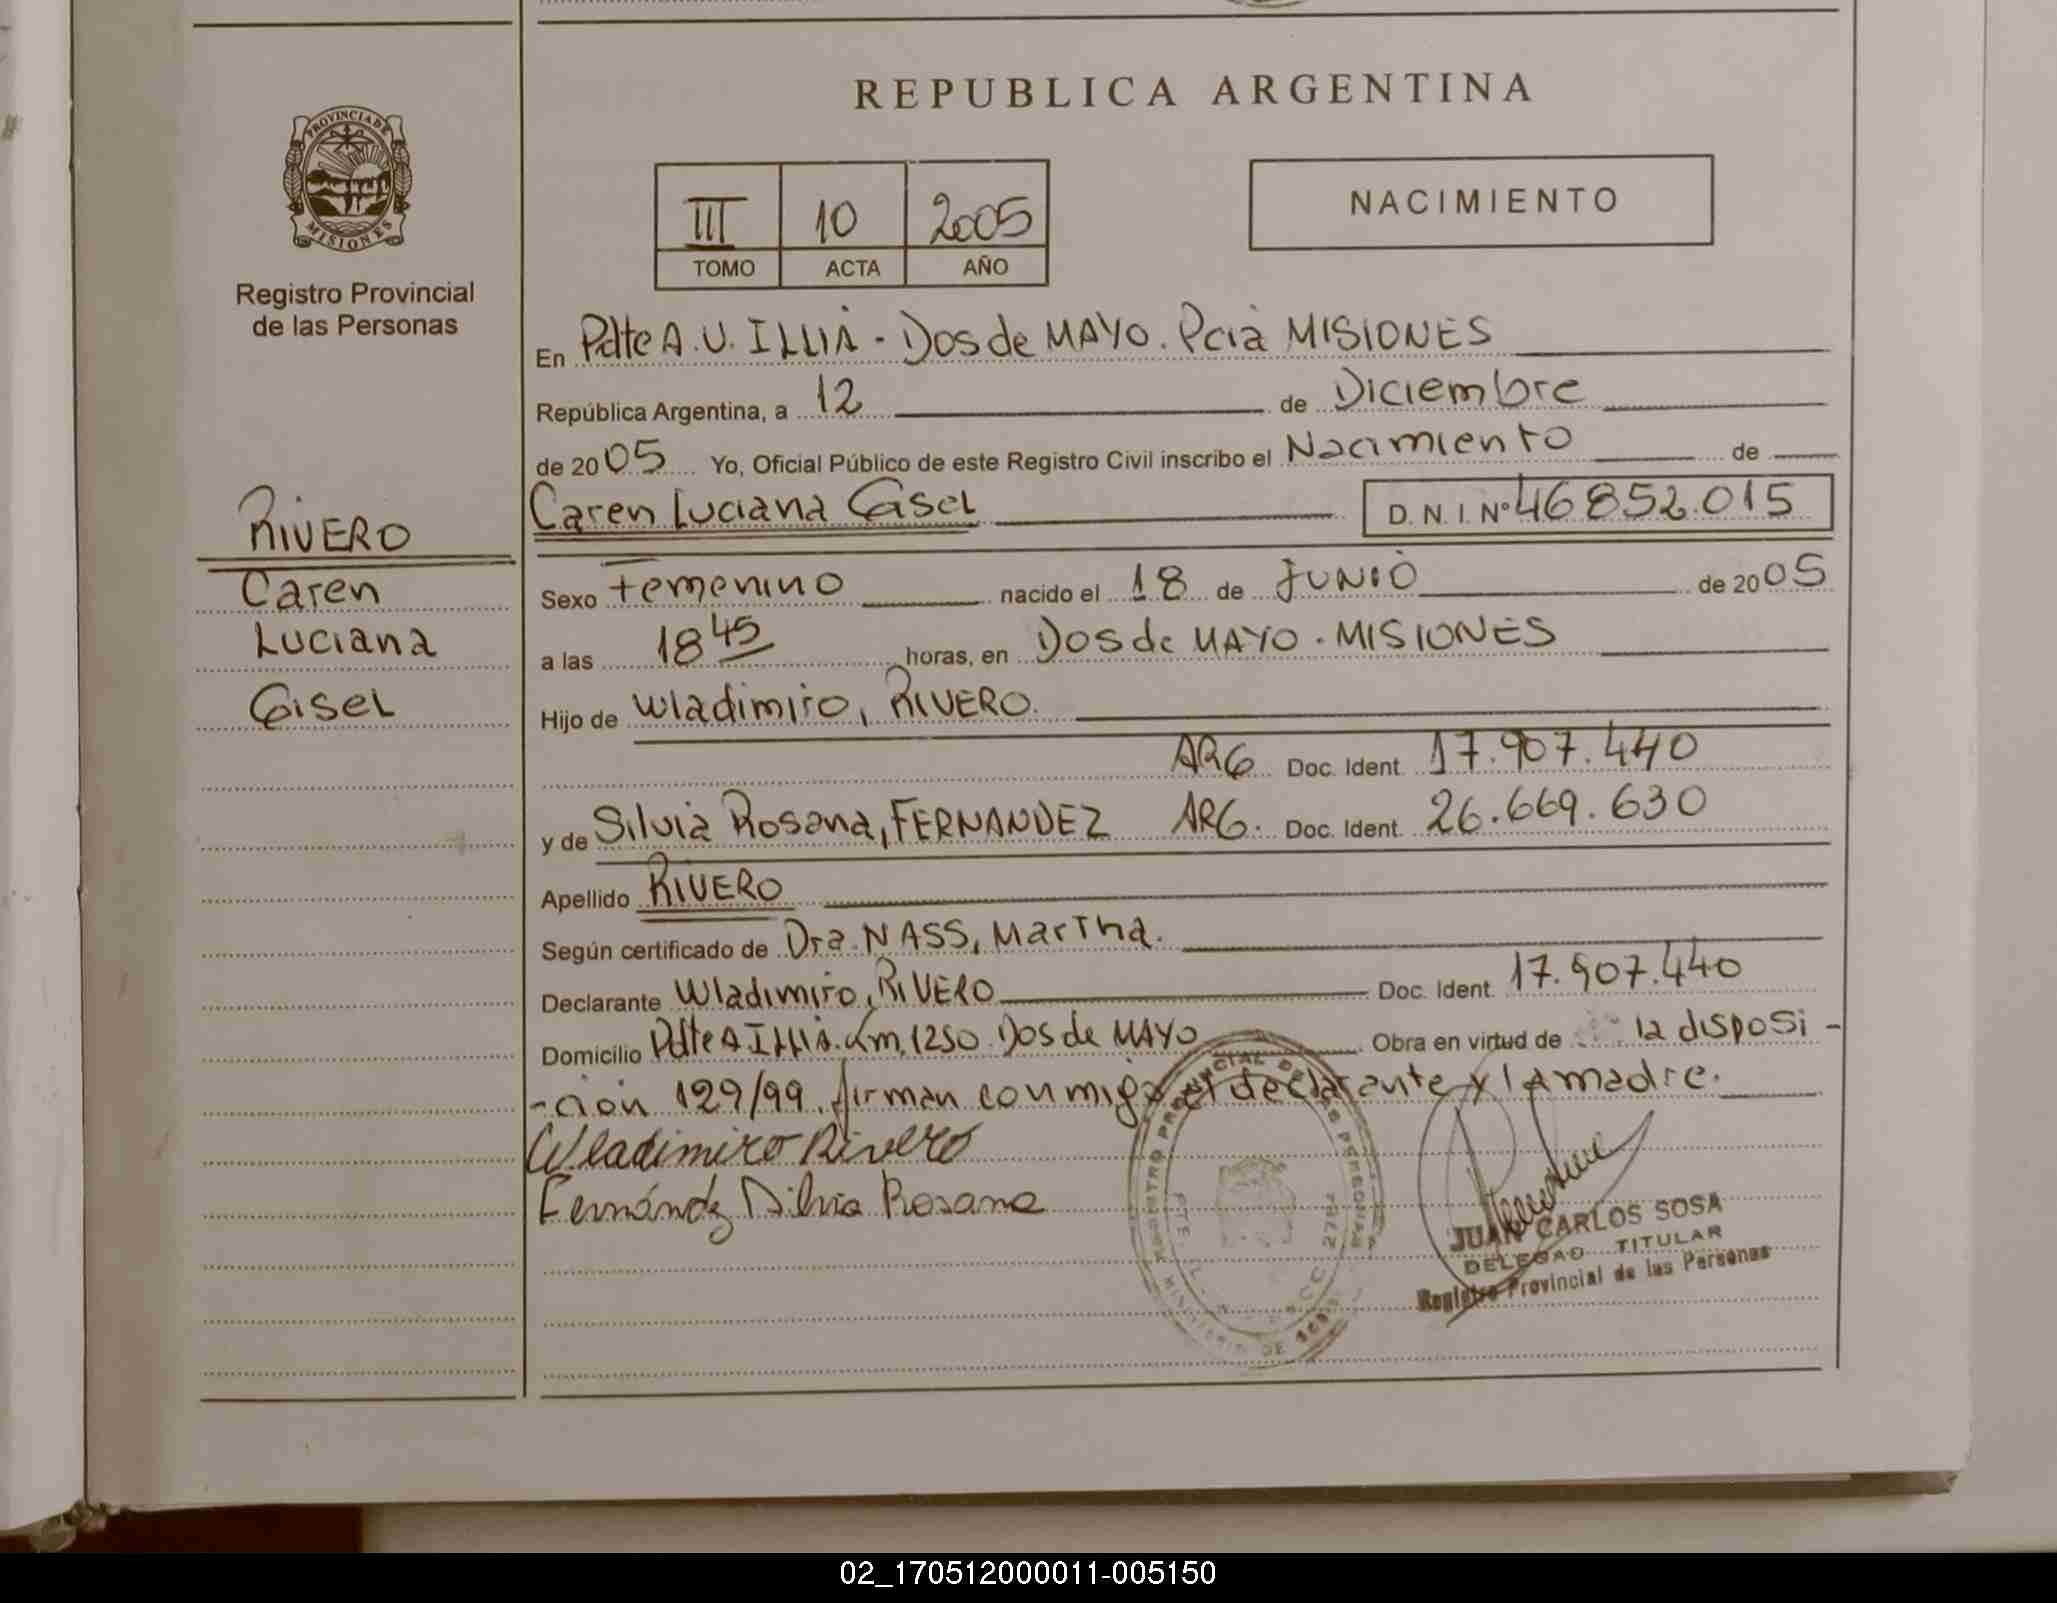 REPUBLICA ARGENTINA
PROVINCIA DE
MISIONES
Registro Provincial
de las Personas
III 10 2005
TOMO ACTA AÑO
NACIMIENTO
En Pdte A. U. ILLIA - Dos de MAYO. Pcia MISIONES
República Argentina, a 12 de Diciembre
de 2005 Yo, Oficial Público de este Registro Civil inscribo el Nacimiento de
Caren Luciana Gisel D. N. I. Nº 46852.015
RIVERO
Caren
Luciana
Gisel
Sexo Femenino nacido el 18 de JUNIO de 2005
a las 18 45 horas, en Dos de MAYO. MISIONES
Hijo de Wladimiro, RIVERO.
ARG Doc. Ident. 17.907.440
y de Silvia Rosana, FERNANDEZ ARG. Doc. Ident. 26.669.630
Apellido RIVERO
Según certificado de Dra. NASS, Martha.
Declarante Wladimiro, RIVERO Doc. Ident. 17.907.440
Domicilio Pdte A ILLIA. Km, 1250. Dos de MAYO Obra en virtud de la disposi-
-ción 129/99. firman conmigo el declarante y la madre.
Wladimiro Rivero
Fernández Silvia Rosana
REGISTRO PROVINCIAL DE LAS PERSONAS
JUAN CARLOS SOSA
DELEGAO TITULAR
Registro Provincial de las Personas
02_170512000011-005150